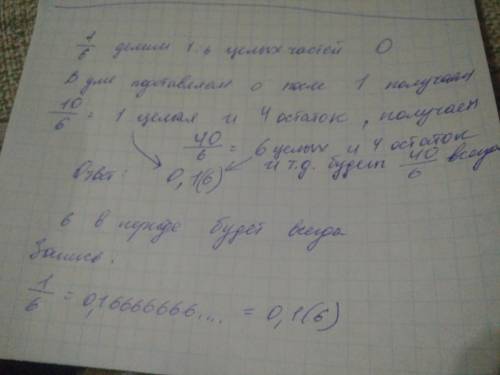 1/6 делим 1 : 6 целых частей 0
В уме подставляем 0 после 1 получаем
10/6 = 1 целая и 4 остаток, получаем
40/6 = 6 целых и 4 остаток
и т.д. будет 40/6 всегда
Ответ: 0,1(6)
6 в периоде будет всегда
Запись:
1/6 = 0,16666666... = 0,1(6)